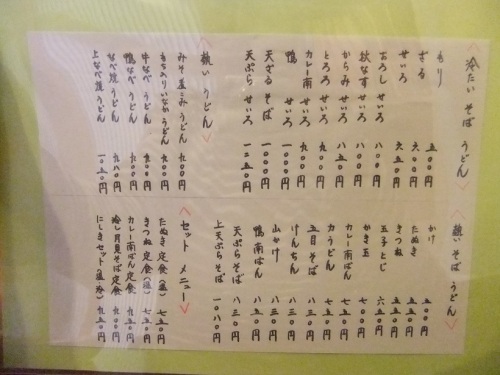 〈冷たい そば うどん〉
もり 五〇〇円
ざる 六〇〇円
せいろ 六五〇円
おろし せいろ 八〇〇円
秋なす せいろ 八〇〇円
からみ せいろ 八五〇円
とろろ せいろ 九〇〇円
カレー南 せいろ 九〇〇円
鴨 せいろ 一〇〇〇円
天ざる そば 一〇〇〇円
天ぷら せいろ 一二五〇円
〈熱い うどん〉
みそ煮こみ うどん 九〇〇円
もち入りいなかうどん 九〇〇円
牛なべ うどん 九〇〇円
鴨なべ うどん 九〇〇円
なべ焼 うどん 九八〇円
上なべ焼 うどん 一一五〇円
〈熱い そば うどん〉
かけ 五〇〇円
たぬき 五五〇円
きつね 五五〇円
玉子とじ 六五〇円
かき玉 七五〇円
カレー南ばん 七五〇円
力うどん 七五〇円
五目そば 八三〇円
けんちん 八三〇円
山かけ 八三〇円
鴨南ばん 八五〇円
天ぷらそば 八三〇円
上天ぷらそば 一〇八〇円
〈セット メニュー〉
たぬき 定食(温) 七五〇円
きつね 定食(温) 七五〇円
カレー南ばん定食 九五〇円
冷し月見そば定食 九〇〇円
にしきセット(温・冷) 九五〇円